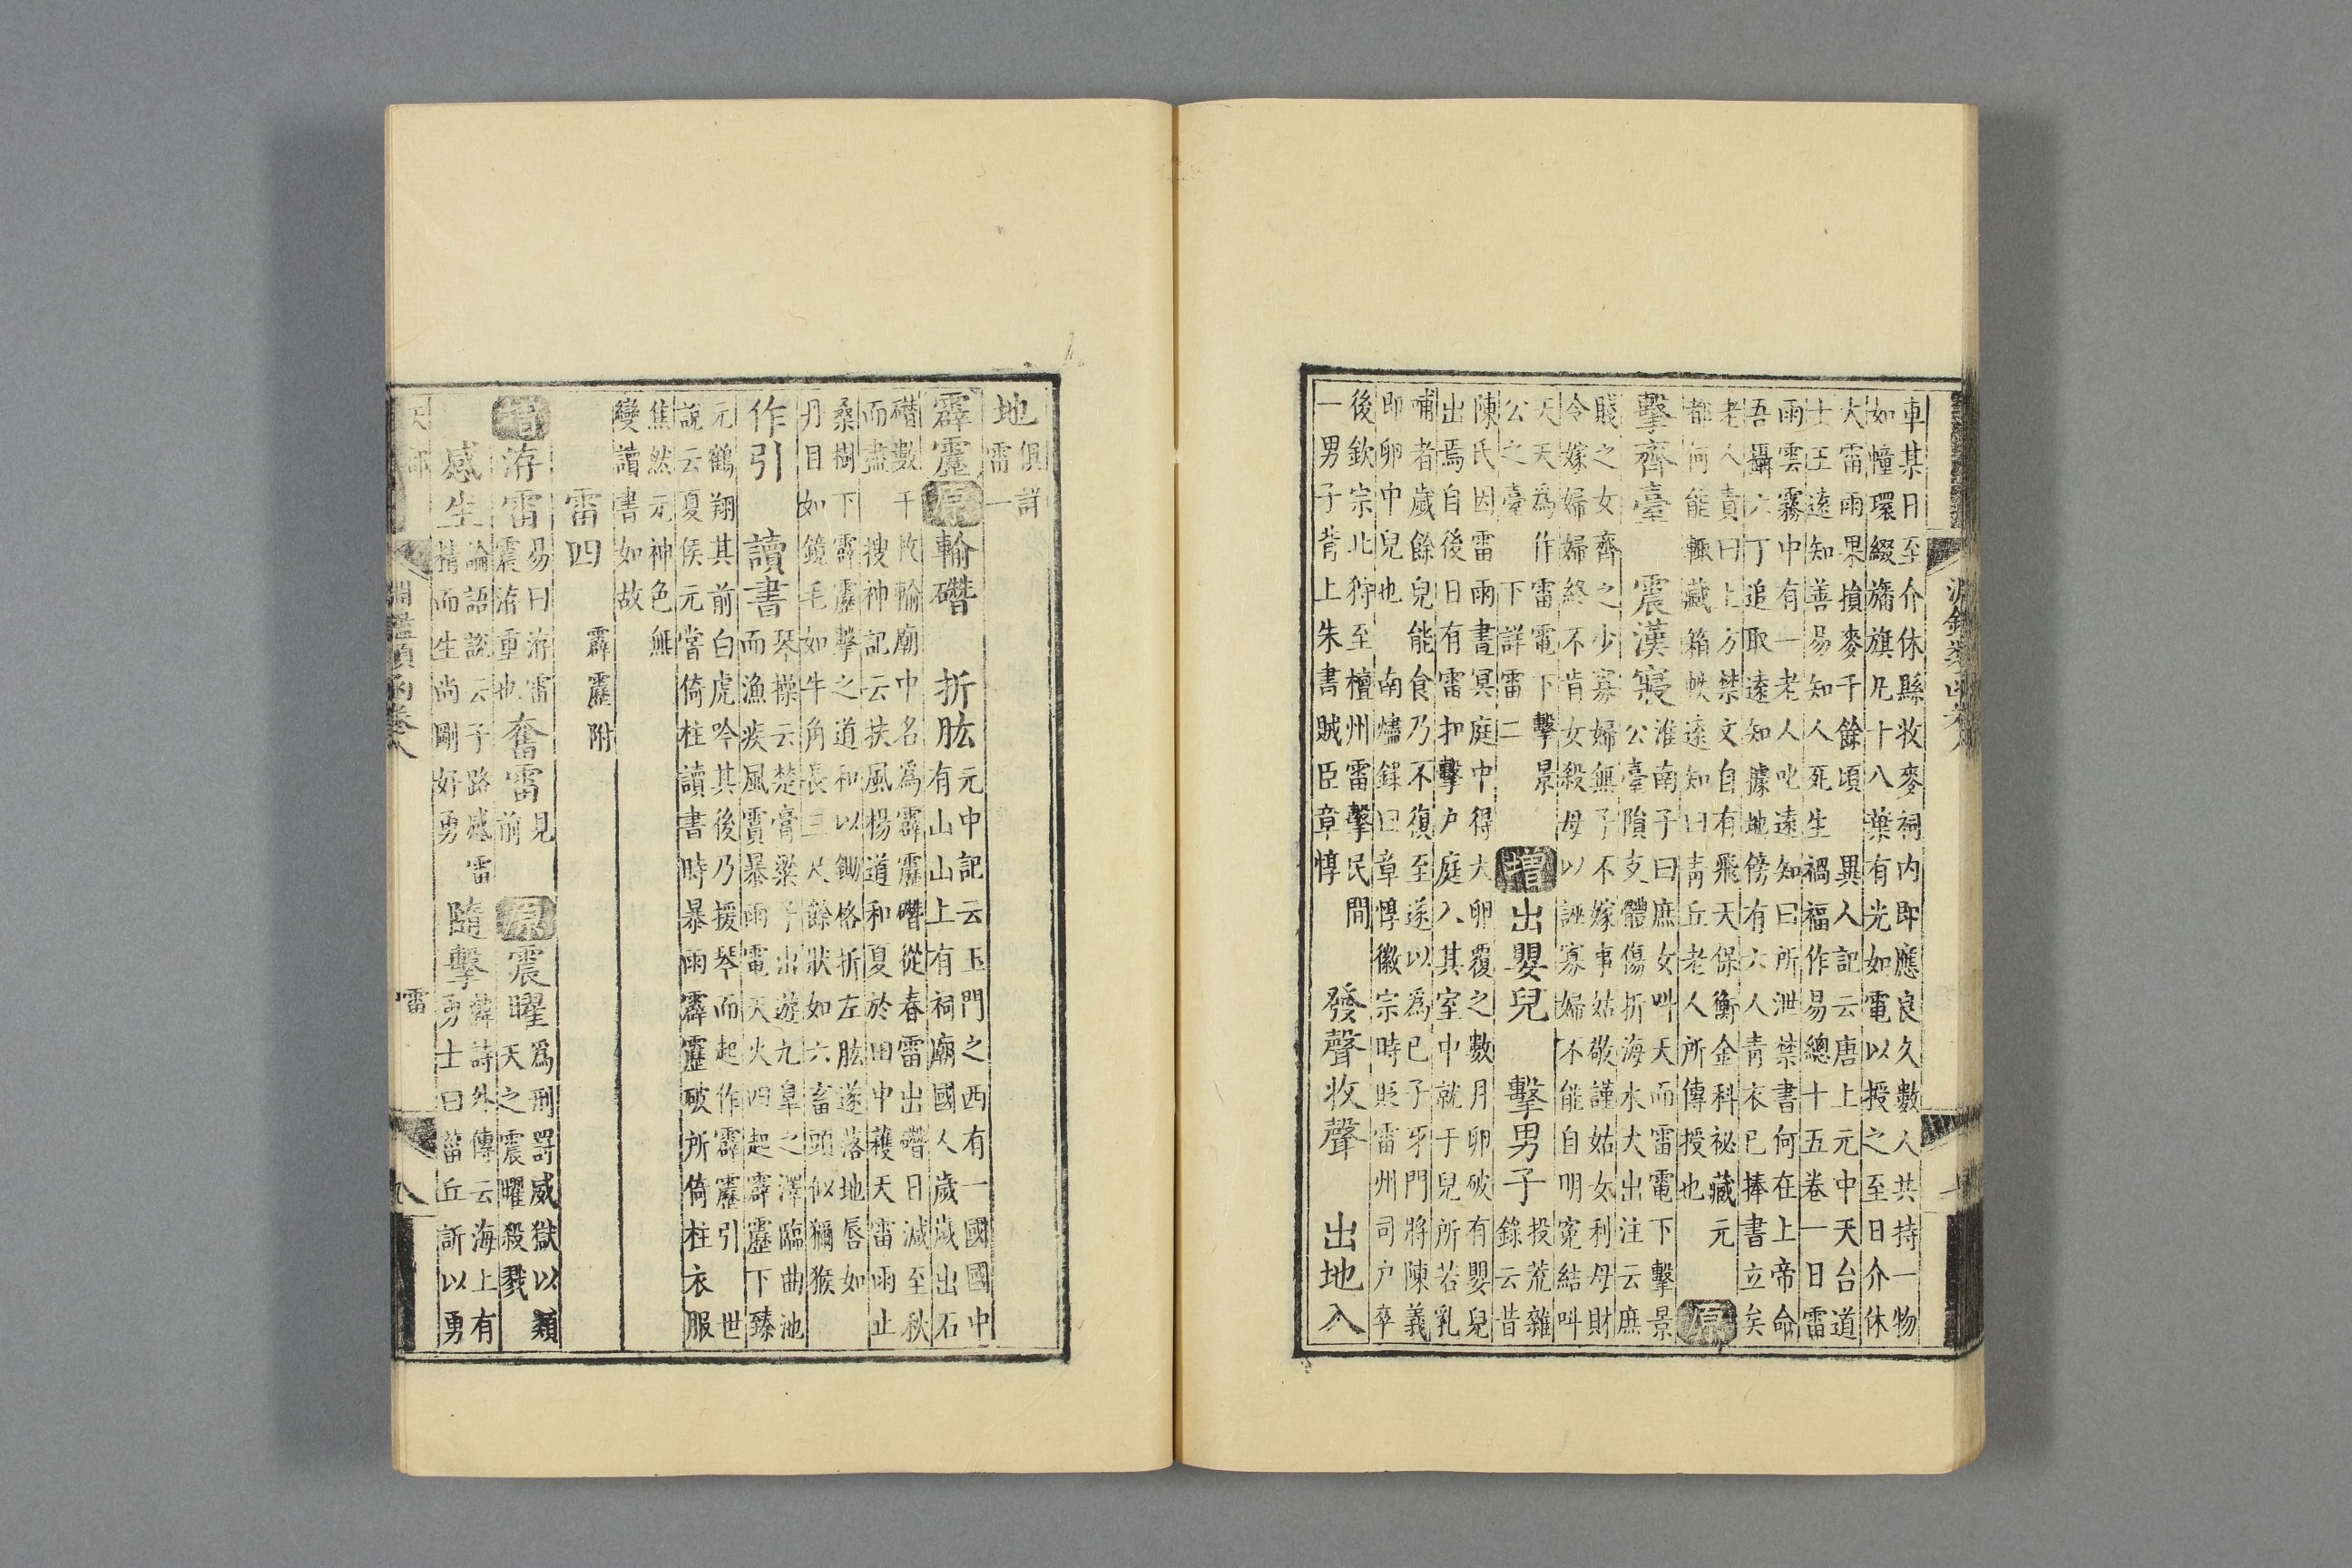 淵鑑類函卷八
車其日至介休縣收麥祠内即應良久數人共持一物
如幢環綴旛旗凡十八葉有光如電以授之至日介休
大雷雨果損麥千餘頃　異人記云唐上元中天台道
士王遠知善易知人死生禍福作易總十五卷一日雷
雨雲霧中有一老人叱遠知曰所泄禁書何在上帝命
吾攝六丁追取遠知據地傍有六人青衣已捧書立矣
老人責曰上方禁文自有飛天保衡金科祕藏元
都何能輒藏箱帙遠知曰青丘老人所傳授也
原
擊齊臺　震漢寢
淮南子曰庶女叫天而雷電下擊景
公臺隕支體傷折海水大出注云庶
賤之女齊之少寡婦無子不嫁事姑敬謹姑女利母財
令嫁婦婦終不肯女殺母以誣寡婦不能自明寃結叫
天天爲作雷電下擊景
公之臺　下詳雷二
增　出嬰兒　擊男子
投荒雜
錄云昔
陳氏因雷雨晝冥庭中得大卵覆之數月卵破有嬰兒
出焉自後日有雷扣擊户庭入其室中就于兒所若乳
哺者歲餘兒能食乃不復至遂以爲已子牙門將陳義
即卵中兒也　南燼錄曰章惇徽宗時貶雷州司户卒
後欽宗北狩至檀州雷擊民間
一男子背上朱書賊臣章惇
發聲收聲　出地入
地
俱詳
雷一
霹靂　原　輸礬　折肱
元中記云玉門之西有一國國中
有山山上有祠廟國人歲歲出石
礬數千枚輸廟中名爲霹靂礬從春雷出礬日減至秋
而盡　搜神記云扶風楊道和夏於田中穫天雷雨止
桑樹下霹靂擊之道和以鋤格折左肱遂落地唇如
丹目如鏡毛如牛角長三尺餘狀如六畜頭似獼猴
作引　讀書
琴操云楚商梁子出遊九皐之澤臨曲池
而漁疾風雷暴雨電天火四起霹靂下臻
元鶴翔其前白虎吟其後乃援琴而起作霹靂引　世
說云夏侯元嘗倚柱讀書時暴雨霹靂破所倚柱衣服
焦然元神色無
變讀書如故
雷四　霹靂附
增　洊雷
易曰洊雷
震洊重也
奮雷
見
前
原　震曜
爲刑罰威獄以類
天之震曜殺戮
感生
論語讖云子路感雷
精而生尚剛好勇
隨擊
韓詩外傳云海上有
勇士曰菑丘訢以勇
天部　淵鑑類函卷八　雷